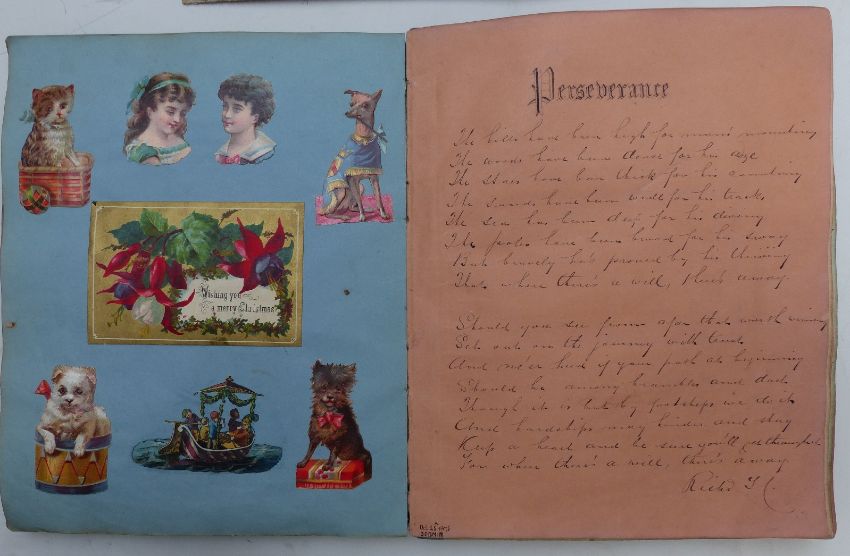 Wishing you
a merry Christmas
Perseverance
The hills have been high for man's mounting
The woods have been dense for his axe
The stars have been thick for his counting
The sands have been wide for his tracks
The sea has been deep for his diving
The poles have been broad for his sway
But bravely he's proved by his thriving
That where there's a will, there's a way.
Should you see from afar that worth winning
Set out on the journey with trust
And ne'er heed if your path at beginning
Should be among brambles and dust
Though it is but by footsteps we do it
And hardships may hinder and stay
Keep a heart and be sure you'll get through it
For where there's a will, there's a way.